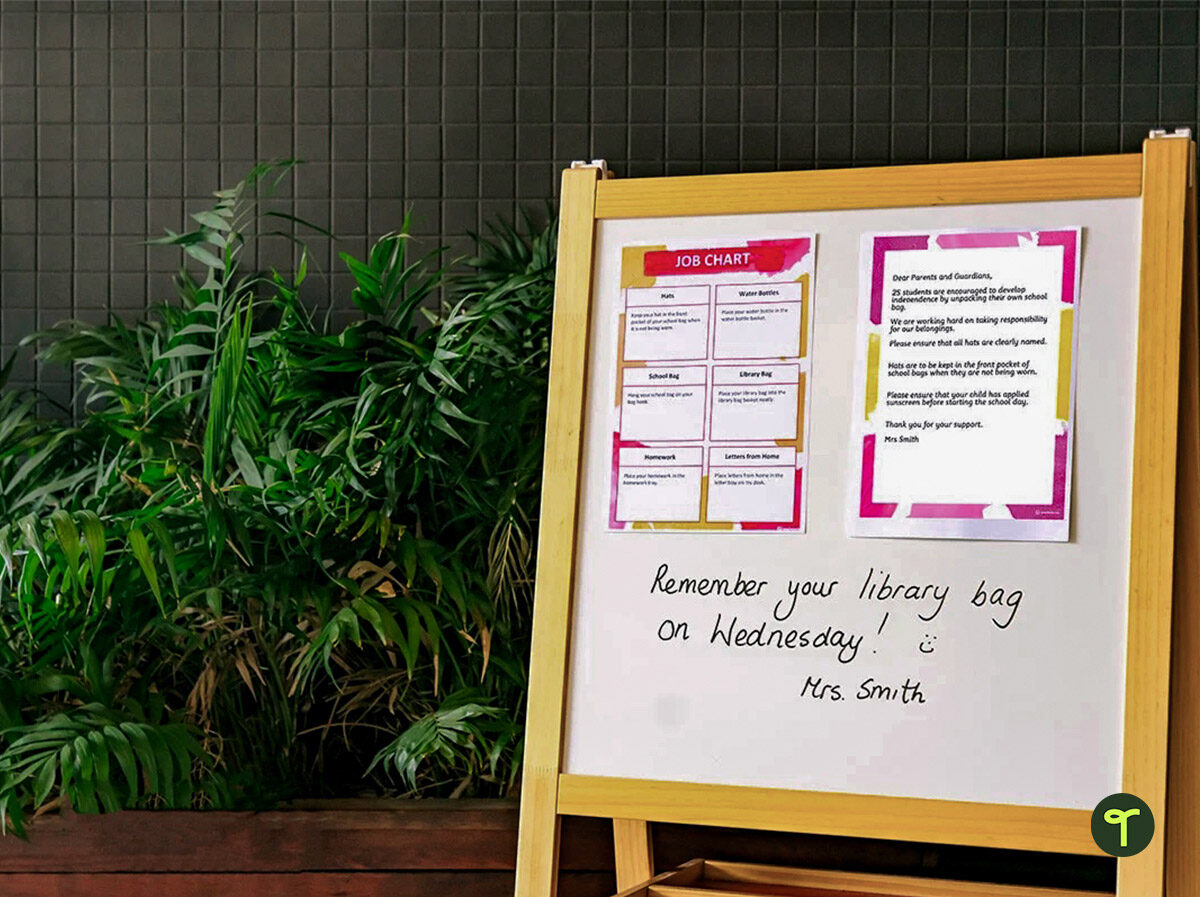 JOB CHART
Hats
Keep your hat in the front
pocket of your school bag when
it is not being worn.
Water Bottles
Place your water bottle in the
water bottle basket.
School Bag
Hang your school bag on your
bag hook.
Library Bag
Place your library bag into the
library bag basket neatly.
Homework
Place your homework in the
homework tray.
Letters from Home
Place letters from home in the
letter tray on my desk.
Dear Parents and Guardians,
2S students are encouraged to develop
independence by unpacking their own school
bag.
We are working hard on taking responsibility
for our belongings.
Please ensure that all hats are clearly named.
Hats are to be kept in the front pocket of
school bags when they are not being worn.
Please ensure that your child has applied
sunscreen before starting the school day.
Thank you for your support.
Mrs Smith
Remember your library bag
on Wednesday!
Mrs. Smith